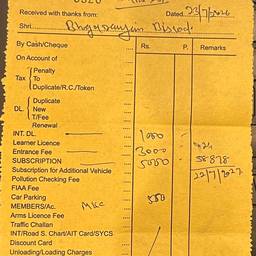 Received with thanks from: Dated 23/7/2026
Shri
By Cash/Cheque Rs. P. Remarks
On Account of
Penalty
Tax To
Duplicate/R.C./Token
Duplicate
DL. New
T/Fee
Renewal
INT. DL.
Learner Licence 1000
Entrance Fee 3000
SUBSCRIPTION 5000 58-878
Subscription for Additional Vehicle 22/7/2027
Pollution Checking Fee
FIAA Fee
Car Parking 550
MEMBERS/Ac.
Arms Licence Fee
Traffic Challan
INT/Road S. Chart/AIT Card/SYCS
Discount Card
Unloading/Loading Charges